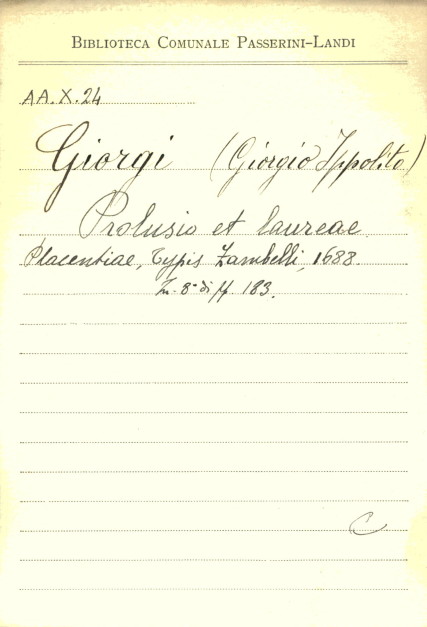 BIBLIOTECA COMUNALE PASSERINI-LANDI
AA.X.24
Giorgi (Giorgio Ippolito)
Prolusio et laureae
Placentiae, Typis Zambelli, 1688.
In-8° di ff. 183.
C